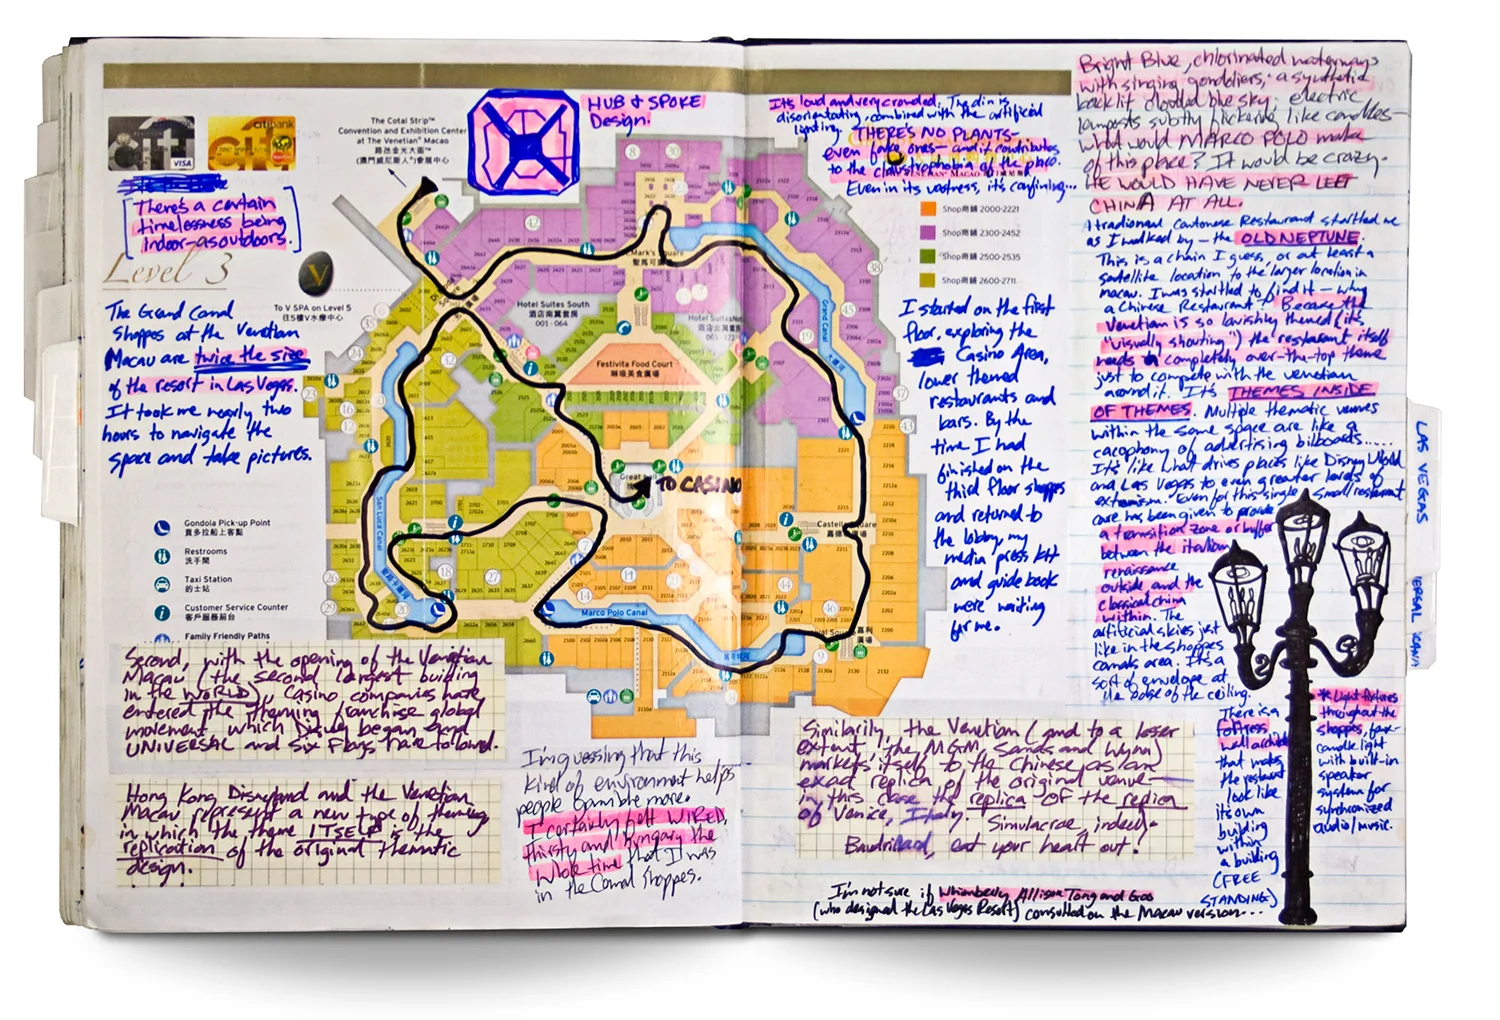 citi
VISA
citibank
citi
[There's a certain
timelessness being
indoor-as outdoors.]
Level 3
The Grand Canal
Shoppes at the Venetian
Macau are twice the size
of the resort in Las Vegas.
It took me nearly two
hours to navigate the
space and take pictures.
The Cotai Strip™
Convention and Exhibition Center
at The Venetian® Macao
路氹金光大道™
(澳門威尼斯人®)會展中心
V
To V SPA on Level 5
往5樓V水療中心
HUB & SPOKE
Design.
Its loud and very crowded. The din is
disorientating, combined with the artificial
lighting. THERE'S NO PLANTS-
even fake ones- and it contributes
to the claustrophobia of the place.
Even in its vastness, it's confining...
Shop商鋪 2000-2221
Shop商鋪 2300-2452
Shop商鋪 2500-2535
Shop商鋪 2600-2711
Mark's Square
聖馬可廣場
Hotel Suites South
酒店南翼套房
001 - 064
Festivita Food Court
琳琅美食廣場
Grand Canal
大運河
San Luca Canal
Great hall
TO CASINO
Marco Polo Canal
Gondola Pick-up Point
貢多拉船上客點
Restrooms
洗手間
Taxi Station
的士站
Customer Service Counter
客戶服務前台
Family Friendly Paths
I started on the first
floor, exploring the
Casino Area,
lower themed
restaurants and
bars. By the
time I had
finished on the
third floor shoppes
and returned to
the lobby, my
media press kit
and guide book
were waiting
for me.
Second, with the opening of the Venetian
Macau (the second largest building
in the WORLD), casino companies have
entered the theming franchise global
movement which Disney began and
UNIVERSAL and Six Flags have followed.
Hong Kong Disneyland and the Venetian
Macau represent a new type of theming
in which the theme ITSELF is the
replication of the original thematic
design.
I'm guessing that this
kind of environment helps
people gamble more.
I certainly felt WIRED,
thirsty and hungry the
whole time that I was
in the Canal Shoppes.
Similarily, the Venetian (and to a lesser
extent, the MGM, Sands and Wynn)
markets itself to the Chinese as an
exact replica of the original venue-
in this case the replica of the replica
of Venice, Italy. Simulacrae, indeed.
Baudrillard, eat your heart out!
I'm not sure if Whimberly Allison Tong and Goo
(who designed the Las Vegas Resort) consulted on the Macau version...
Bright Blue, chlorinated waterways
with singing gondoliers; a synthetic
backlit clouded blue sky; electric
lamposts subtly flickering like candles-
What would MARCO POLO make
of this place? It would be crazy.
HE WOULD HAVE NEVER LEFT
CHINA AT ALL.
A traditional Cantonese Restaurant startled me
as I walked by - the OLD NEPTUNE.
This is a chain I guess, or at least a
satellite location to the larger location in
macau. I was startled to find it - why
a Chinese Restaurant? Because the
Venetian is so lavishly themed (it's
"visually shouting") the restaurant itself
needs a completely over-the-top theme
just to compete with the venetian
around it. It's THEMES INSIDE
OF THEMES. Multiple thematic venues
within the same space are like a
cacophony of advertising billboards.....
It's like what drives places like Disney World
and Las Vegas to even greater levels of
extremism. Even for this single, small restaurant
care has been given to provide
a transition zone or buffer
between the italian
renaissance
outside and the
classical china
within. The
artificial skies just
like in the shoppes
canals area. Its a
sort of envelope at
the base of the ceiling.
There is a
fortress
wall
that makes
the restaurant
look like
its own
building
within
a building
(FREE
STANDING)
* Light fixtures
throughout the
shoppes, faux-
candle light
with built-in
speaker
system for
synchronized
audio/music.
LAS VEGAS